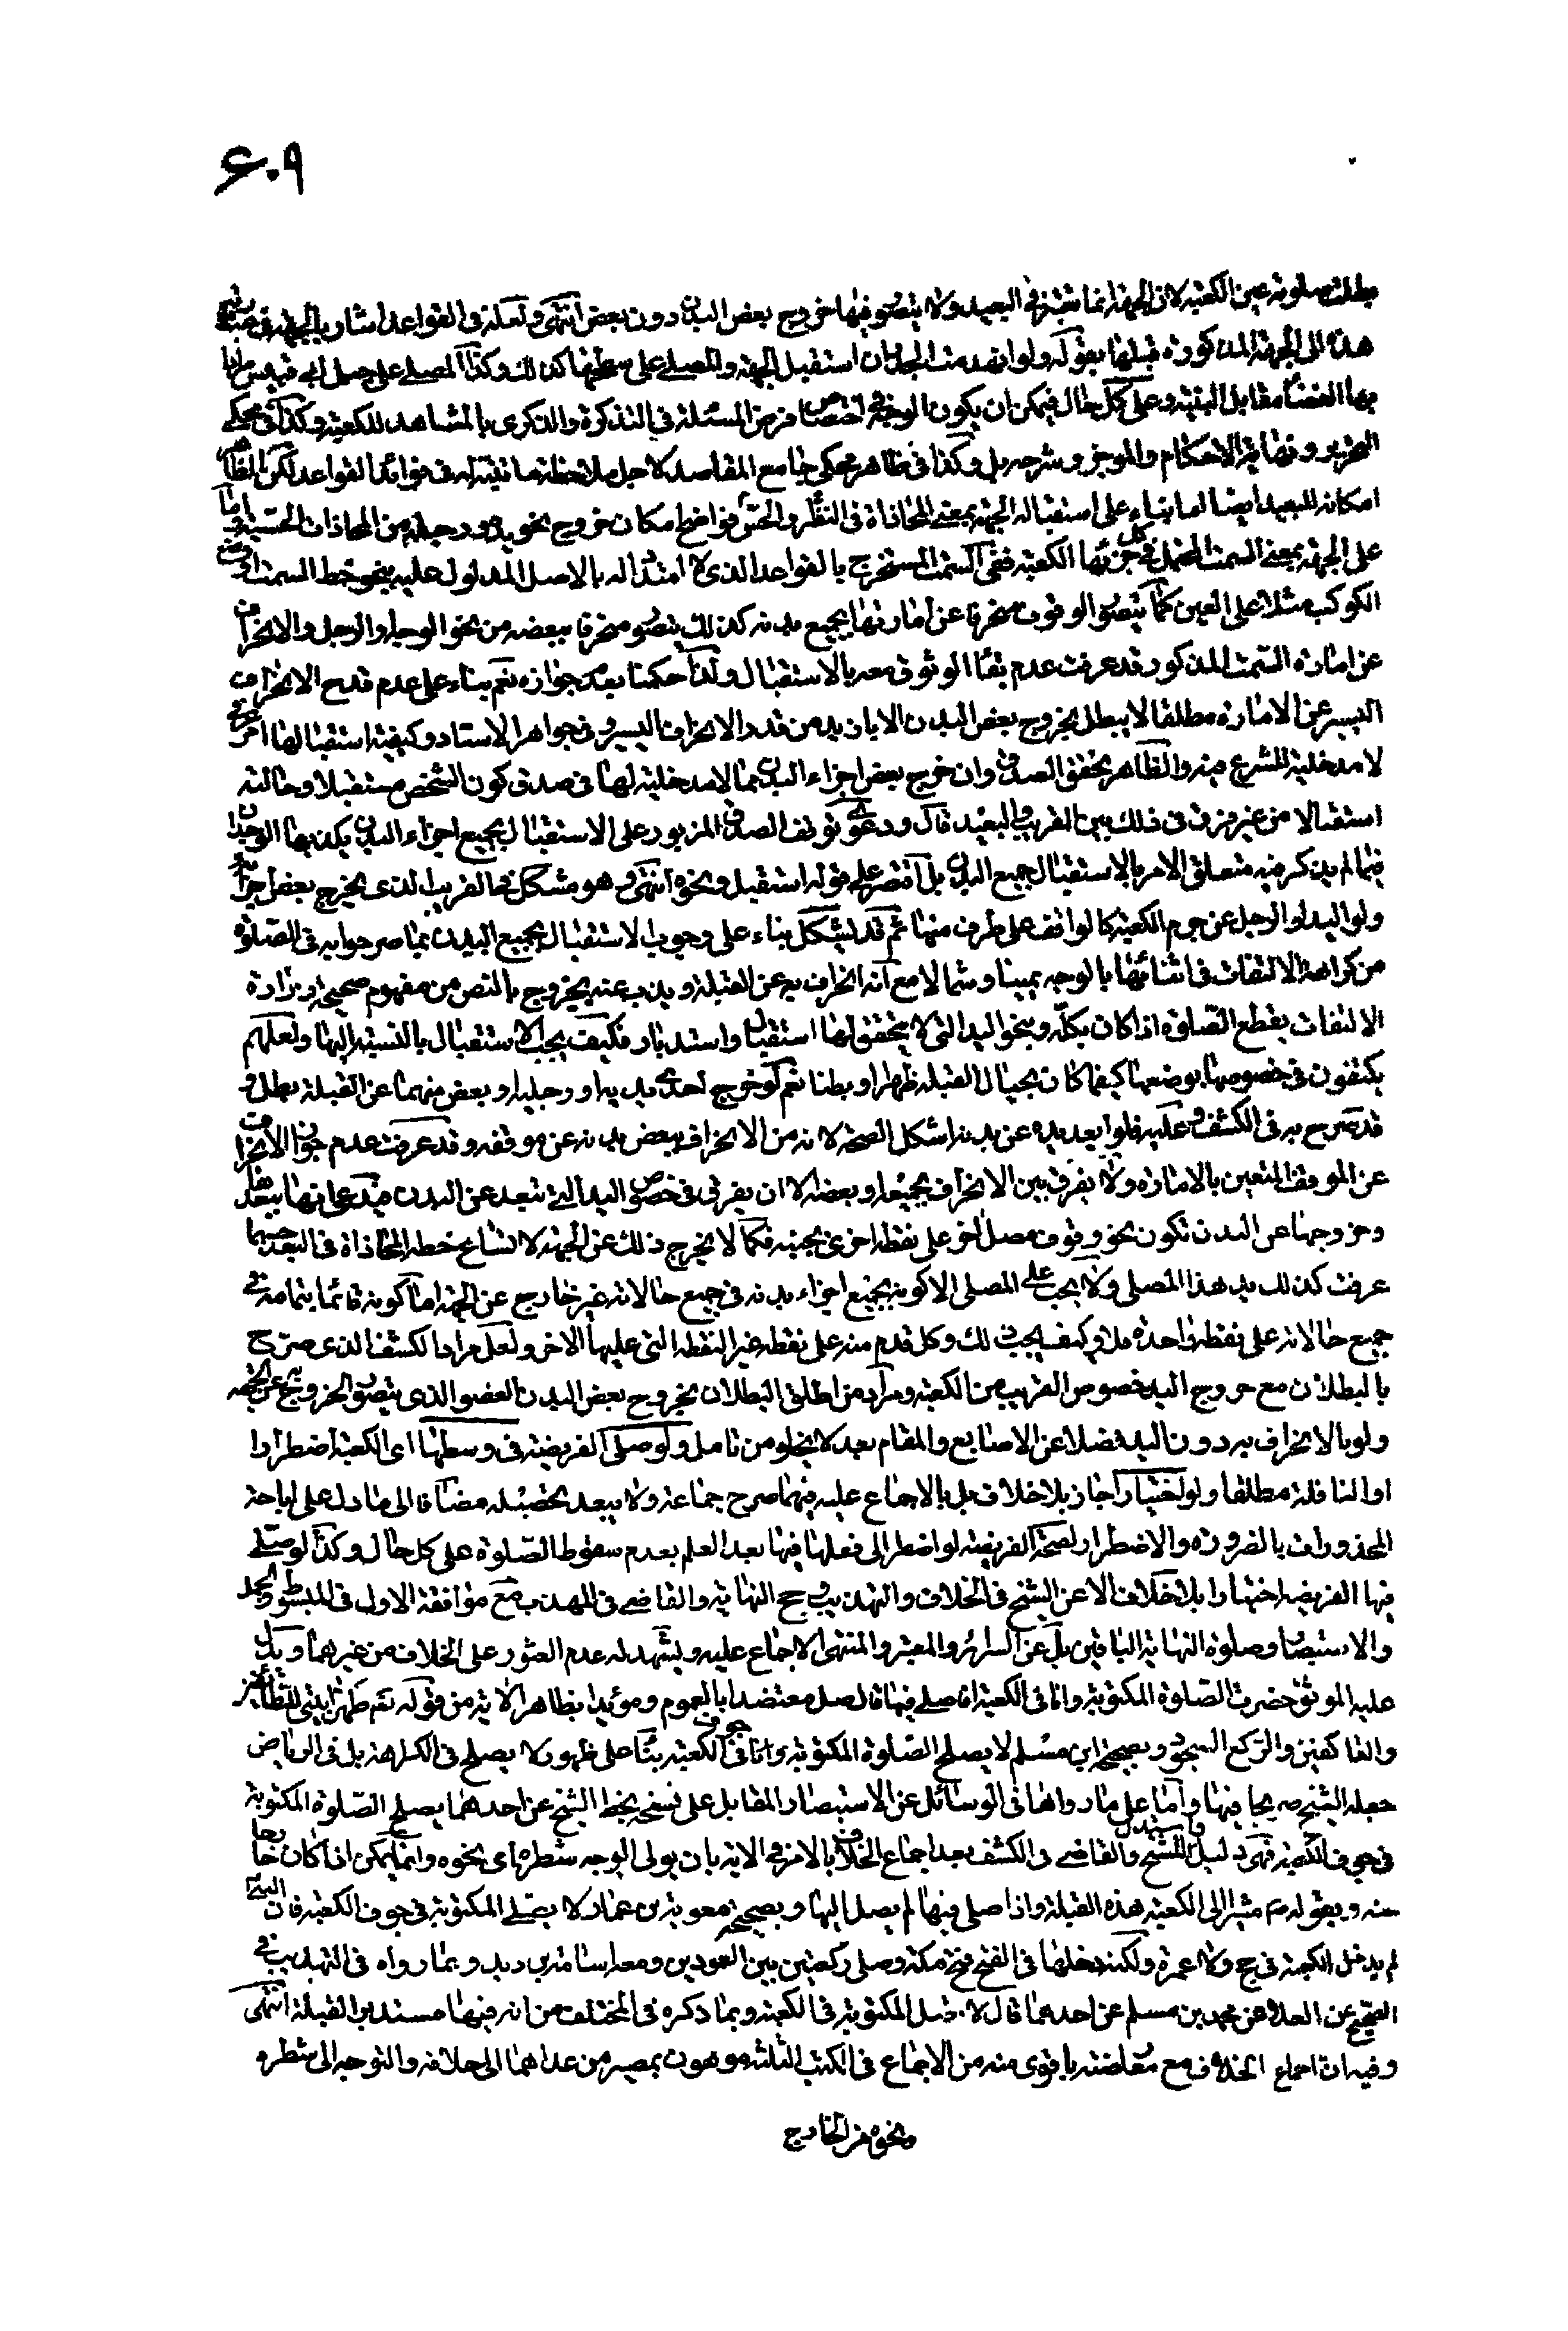 ۶۰۹
بطلت صلوته عين الكعبة لان الجهة انما تعتبر في البعيد ولا يتصور فيها خروج بعض البدن دون بعض انتهى ولعله في القواعد اشار بالجهة في
هذا الى الجهة المذكورة قبلها بقوله ولو انهدمت الجدران استقبل الجهة والمصلي على سطحها كذلك وكذا المصلي على جبل ابي قبيس
بها الفضاء مقابل البنية وعلى كل حال فيمكن ان يكون الوجه في اختصاص فرض المسئلة في التذكرة والذكرى بالمشاهد للكعبة وكذا في محكي
التحرير ونهاية الاحكام والموجز وشرحه بل وكذا في ظاهر محكي جامع المقاصد لاجل ملاحظة ما في فوائد القواعد لكن الظاهر
امكانه للبعيد ايضا اما بناء على استقباله الجهة بمعنى المحاذاة في النظر والحس فواضح امكان خروج نحو يده ورجله من المحاذات الحسية واما
على الجهة بمعنى السمت المحتمل في كل جزئها الكعبة ففي السمت المستخرج بالقواعد الذي لا امتداد له بالاصل المدلول عليه بنحو خط السمت او وضع
الكوكب مثلا على العين كما يتصور الوقوف منحرفا عن امارتها بجميع بدنه كذلك يتصور منحرفا ببعضه من نحو الوجه والرجل والانحراف
عن امارة السمت المذكور قد عرفت عدم بقاء الوثوق معه بالاستقبال ولذا حكمنا بعدم جوازه نعم بناء على عدم قدح الانحراف
اليسير عن الامارة مطلقا لا يبطل بخروج بعض البدن الا بان يزيد من قدر الانحراف اليسير وفي جواهر الاستاد وكيفية استقبالها امر عرفي
لا مدخلية للشرع فيه والظاهر تحقق الصدق وان خرج بعض اجزاء البدن مما لا مدخلية لها في صدق كون الشخص مستقبلا وحالته
استقبالا من غير فرق في ذلك بين القريب والبعيد قال ودعوى توقف الصدق المزبور على الاستقبال بجميع اجزاء البدن يكذبها الوجدان
فيما لم يذكر فيه متعلق الامر بالاستقبال جميع البدن بل اقتصر على قوله استقبل ونحوه انتهى وهو مشكل في القريب الذي يخرج بعض اجزاء بدنه
ولو اليد او الرجل عن جرم الكعبة كالواقف على طرف منها ثم قد يشكل بناء على وجوب الاستقبال بجميع البدن بما صرحوا به في الصلوة
من كراهة الالتفات في اثنائها بالوجه يمينا وشمالا مع انه انحراف به عن القبلة ويذب عنه بخروج بالنص من مفهوم صحيحة زرارة
الالتفات يقطع الصلوة اذا كان بكله وبنحو اليد التي لا يتحقق لها استقبال واستدبار فكيف يجب الاستقبال بالنسبة اليها ولعلهم
يكتفون في خصوصها بوضعها كيفما كان بحيال القبلة ظهرا او بطنا نعم لو خرج احدى يديه او رجليه او بعض منهما عن القبلة بطل و
قد صرح به في الكشف وعليه فلو ابعد يده عن بدنه اشكل الصحة لانه من الانحراف ببعض بدنه عن موقفه وقد عرفت عدم جواز الانحراف
عن الموقف المتعين بالامارة ولا يفرق بين الانحراف بجميعه او بعضه الا ان يفرق في خصوص اليد التي تبعد عن البدن فيدعى انها ببعدها
وخروجها عن البدن تكون نحو وقوف مصل اخر على نقطة اخرى بجنبه فكما لا يخرج ذلك عن الجهة لاتساع خط المحاذاة في البعد حسبما
عرفت كذلك يد هذا المصلي ولا يجب على المصلي الا كونه بجميع اجزاء بدنه في جميع حالاته غير خارج عن الجهة اما كونه قائما بتمامه في
جميع حالاته على نقطة واحدة فلا وكيف يجب ذلك وكل قدم منه على نقطة غير النقطة التي عليها الاخر ولعل مراد الكشف الذي صرح
بالبطلان مع خروج اليد خصوص القريب من الكعبة ومراد من اطلق البطلان بخروج بعض البدن العضو الذي يتصور الخروج به عن الجهة
ولو بالانحراف به دون اليد فضلا عن الاصابع والمقام بعد لا يخلو من تامل ولو صلى الفريضة في وسطها اى الكعبة اضطرارا
او النافلة مطلقا ولو اختيارا جاز بلا خلاف بل بالاجماع عليه فيهما صرح جماعة ولا يبعد تحصيله مضافا الى ما دل على اباحة
المحذورات بالضرورة والاضطرار لصحة الفريضة لو اضطر الى فعلها فيها بعد العلم بعدم سقوط الصلوة على كل حال وكذا لو صلى
فيها الفريضة اختيارا بلا خلاف الا عن الشيخ في الخلاف والتهذيب وحج النهاية والقاضي في المهذب مع موافقة الاول في المبسوط والجمل
والاستبصار وصلوة النهاية الباقين بل عن السرائر والمعتبر والمنتهى الاجماع عليه ويشهد له عدم العثور على الخلاف من غيرهما ويدل
عليه الموثق حضرت الصلوة المكتوبة وانا في الكعبة افاصلي فيها قال صل معتضدا بالعموم ومؤيدا بظاهر الاية من قوله تعم طهرا بيتي للطائفين
والعاكفين والركع السجود وبصحيحة ابن مسلم لا يصلح الصلوة المكتوبة في جوف الكعبة بناء على ظهور لا يصلح في الكراهة بل في الرياض
جعله الشيخ صريحا فيها واما على ما رواها في الوسائل عن الاستبصار المقابل على نسخة بخط الشيخ عن احدهما يصلح الصلوة المكتوبة
في جوف الكعبة فهي دليل واستدل للشيخ والقاضي في الكشف بعد اجماع الخلاف بالامر في الاية بان يولي الوجه شطره اى نحوه وانما يمكن اذا كان خارجا
عنه وبقوله ص مشيرا الى الكعبة هذه القبلة واذا صلى فيها لم يصل اليها وبصحيحة معوية بن عمار لا يصلي المكتوبة في جوف الكعبة فان النبي ص
لم يدخل الكعبة في حج ولا عمرة ولكنه دخلها في الفتح فتح مكة وصلى ركعتين بين العمودين ومعه اسامة بن زيد وبما رواه في التهذيب في
الصحيح عن العلاء عن محمد بن مسلم عن احدهما قال لا تصل المكتوبة في الكعبة وبما ذكره في المختلف من انه فيها مستدبر القبلة انتهى
وفيه ان اجماع الخلاف مع معارضته باقوى منه من الاجماع في الكتب الثلثة موهون بمصير من عداهما الى خلافه والتوجه الى شطره
ونحوه من الخارج